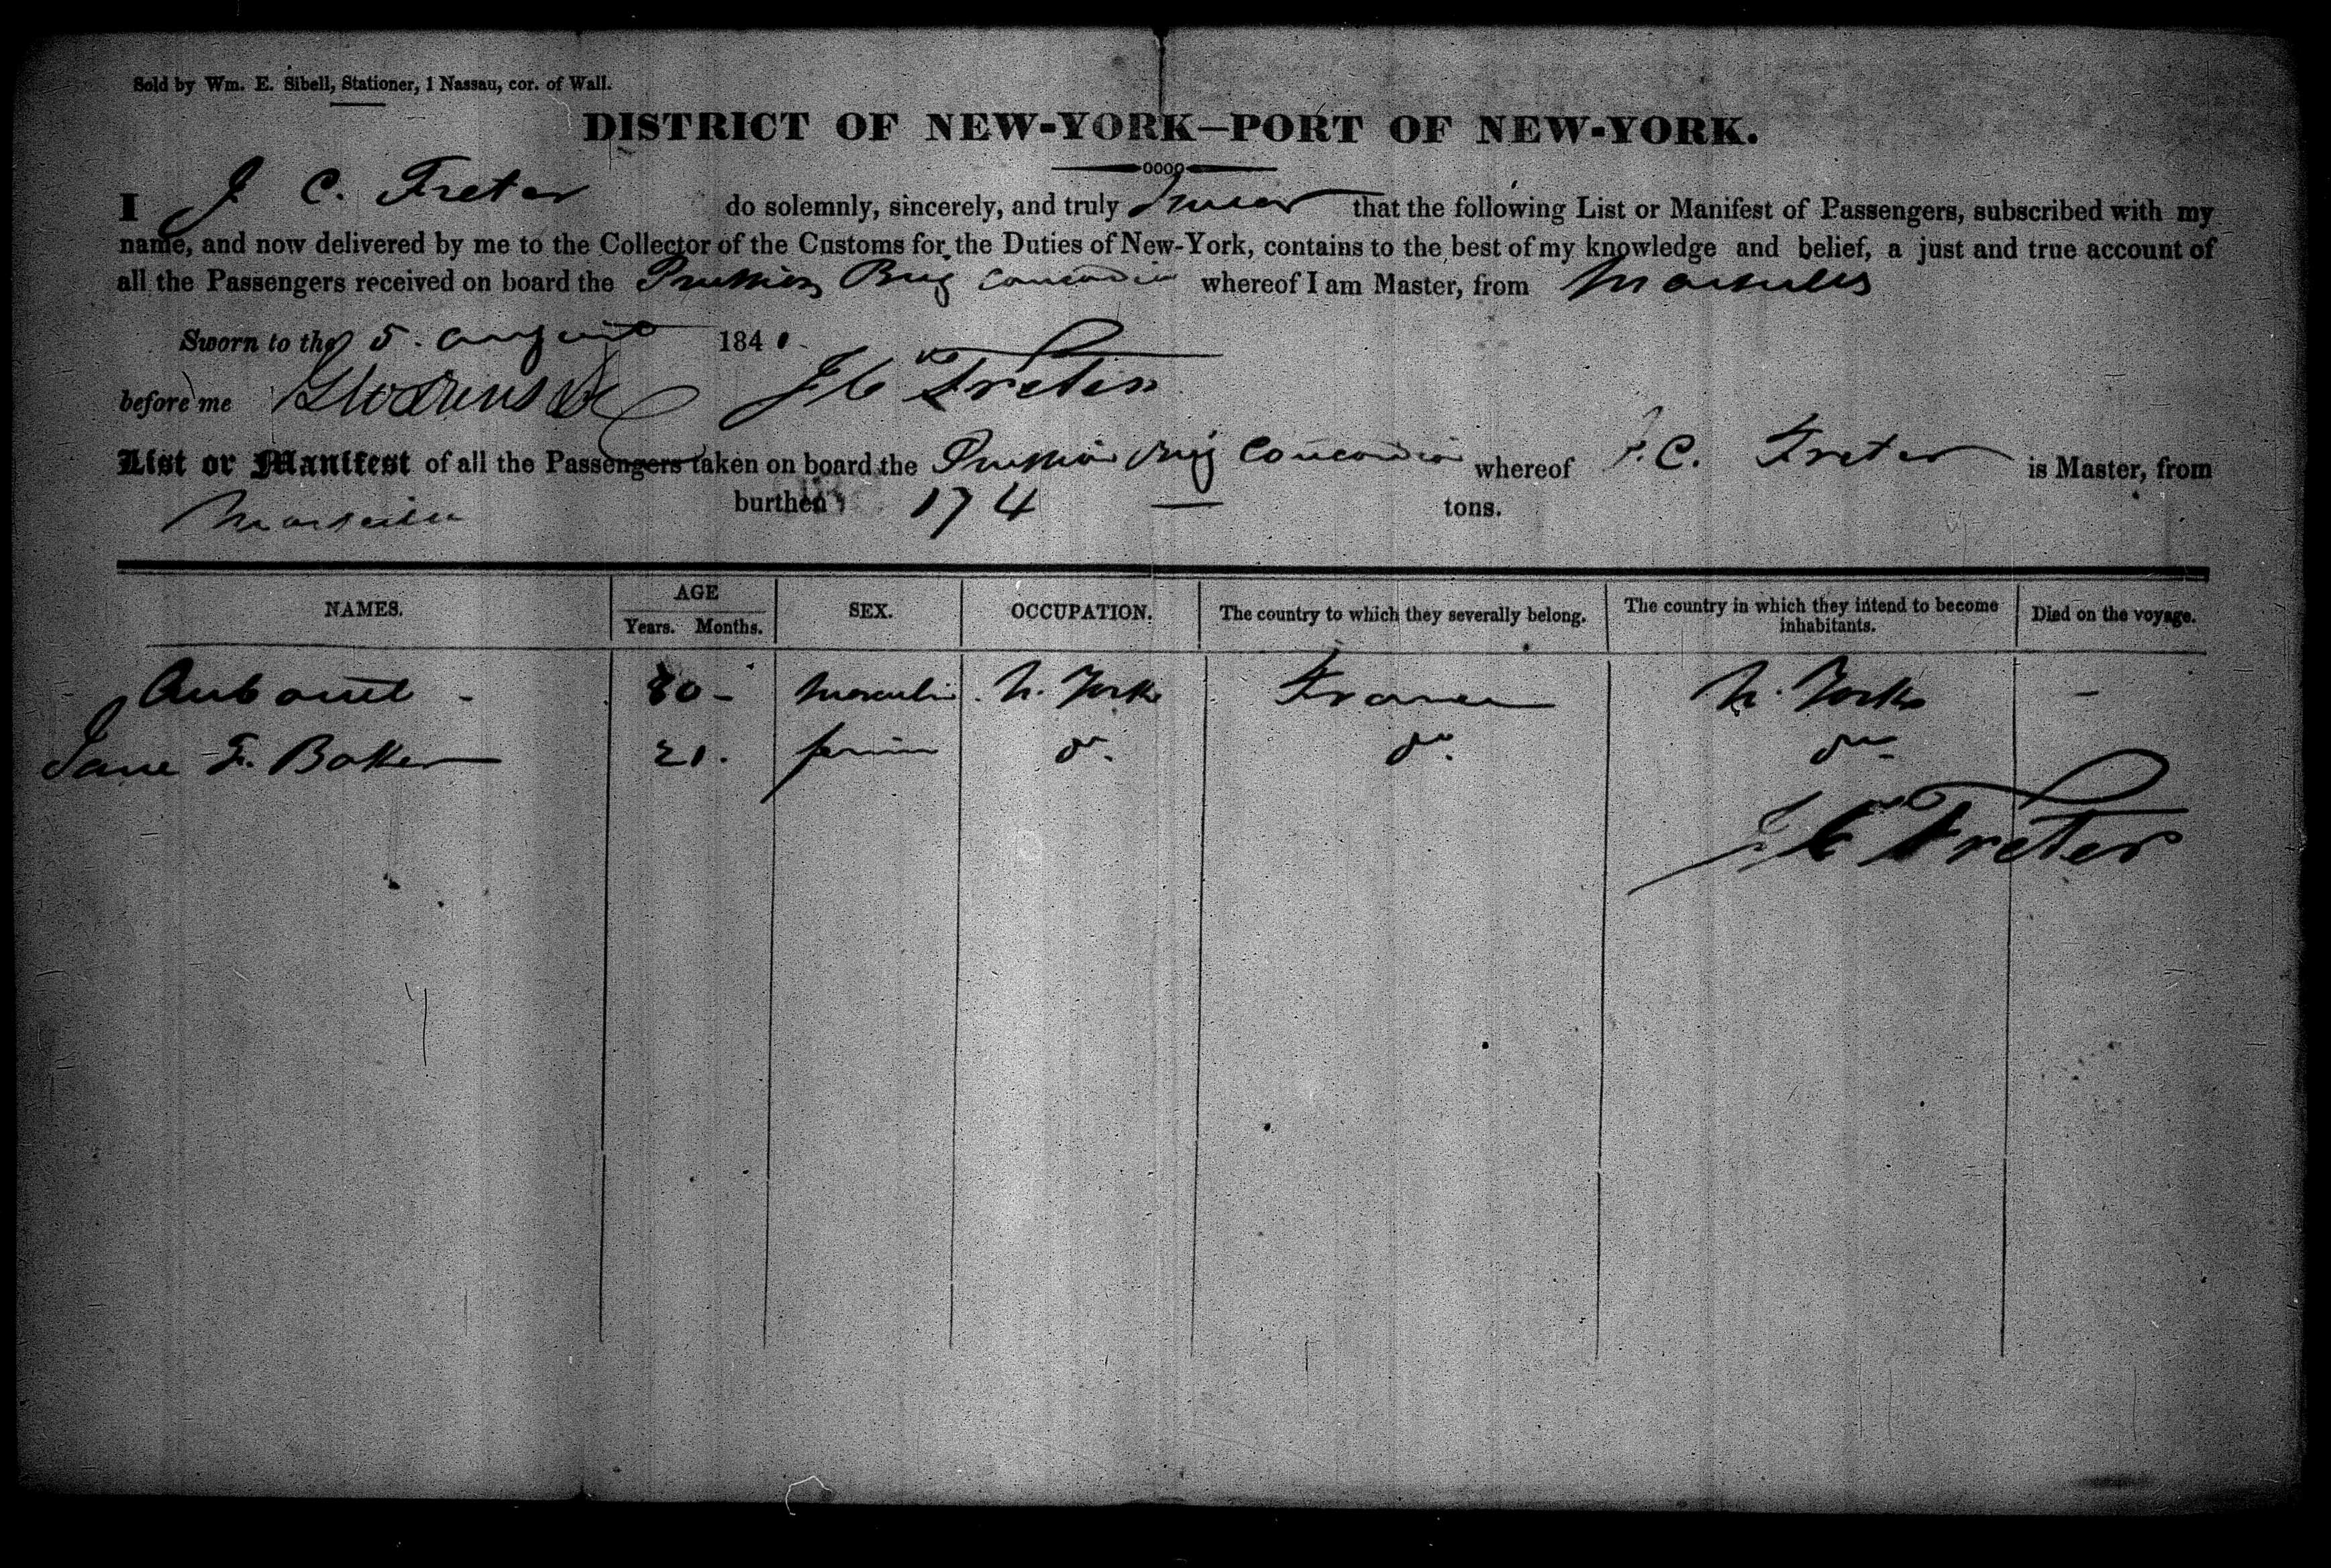 Sold by Wm. E. Sibell, Stationer, 1 Nassau, cor. of Wall.
DISTRICT OF NEW-YORK—PORT OF NEW-YORK.
I J. C. Freter do solemnly, sincerely, and truly swear that the following List or Manifest of Passengers, subscribed with my
name, and now delivered by me to the Collector of the Customs for the Duties of New-York, contains to the best of my knowledge and belief, a just and true account of
all the Passengers received on board the Prussian Brig Concordia whereof I am Master, from Marseilles
Sworn to the 5. august 1840
before me J C Freter
List or Manifest of all the Passengers taken on board the Prussian Brig Concordia whereof J. C. Freter is Master, from
Marseilles burthen 174 — tons.
NAMES. AGE Years. Months. SEX. OCCUPATION. The country to which they severally belong. The country in which they intend to become inhabitants. Died on the voyage.
- N. York France N. York -
Jane F. Baker 21. do. do. do.
J C Freter